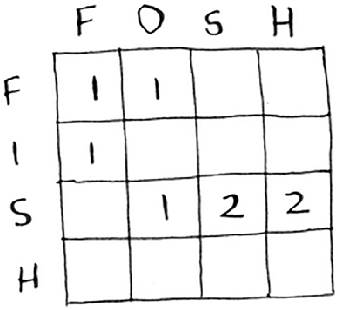 F O S H
F 1 1
I 1
S 1 2 2
H